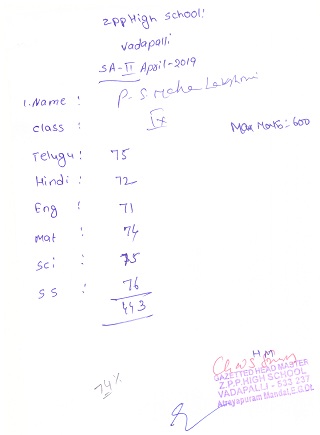 ZPP High School:
Vadapalli
SA-II April-2019
1. Name : P. S. Maha Lakshmi
class : IX
Max Marks = 600
Telugu : 75
Hindi : 72
Eng : 71
Mat : 74
Sci : 75
SS : 76
443
74%
H.M
GAZETTED HEAD MASTER
Z.P.P. HIGH SCHOOL
VADAPALLI - 533 237
Atreyapuram Mandal, E.G.Dt.